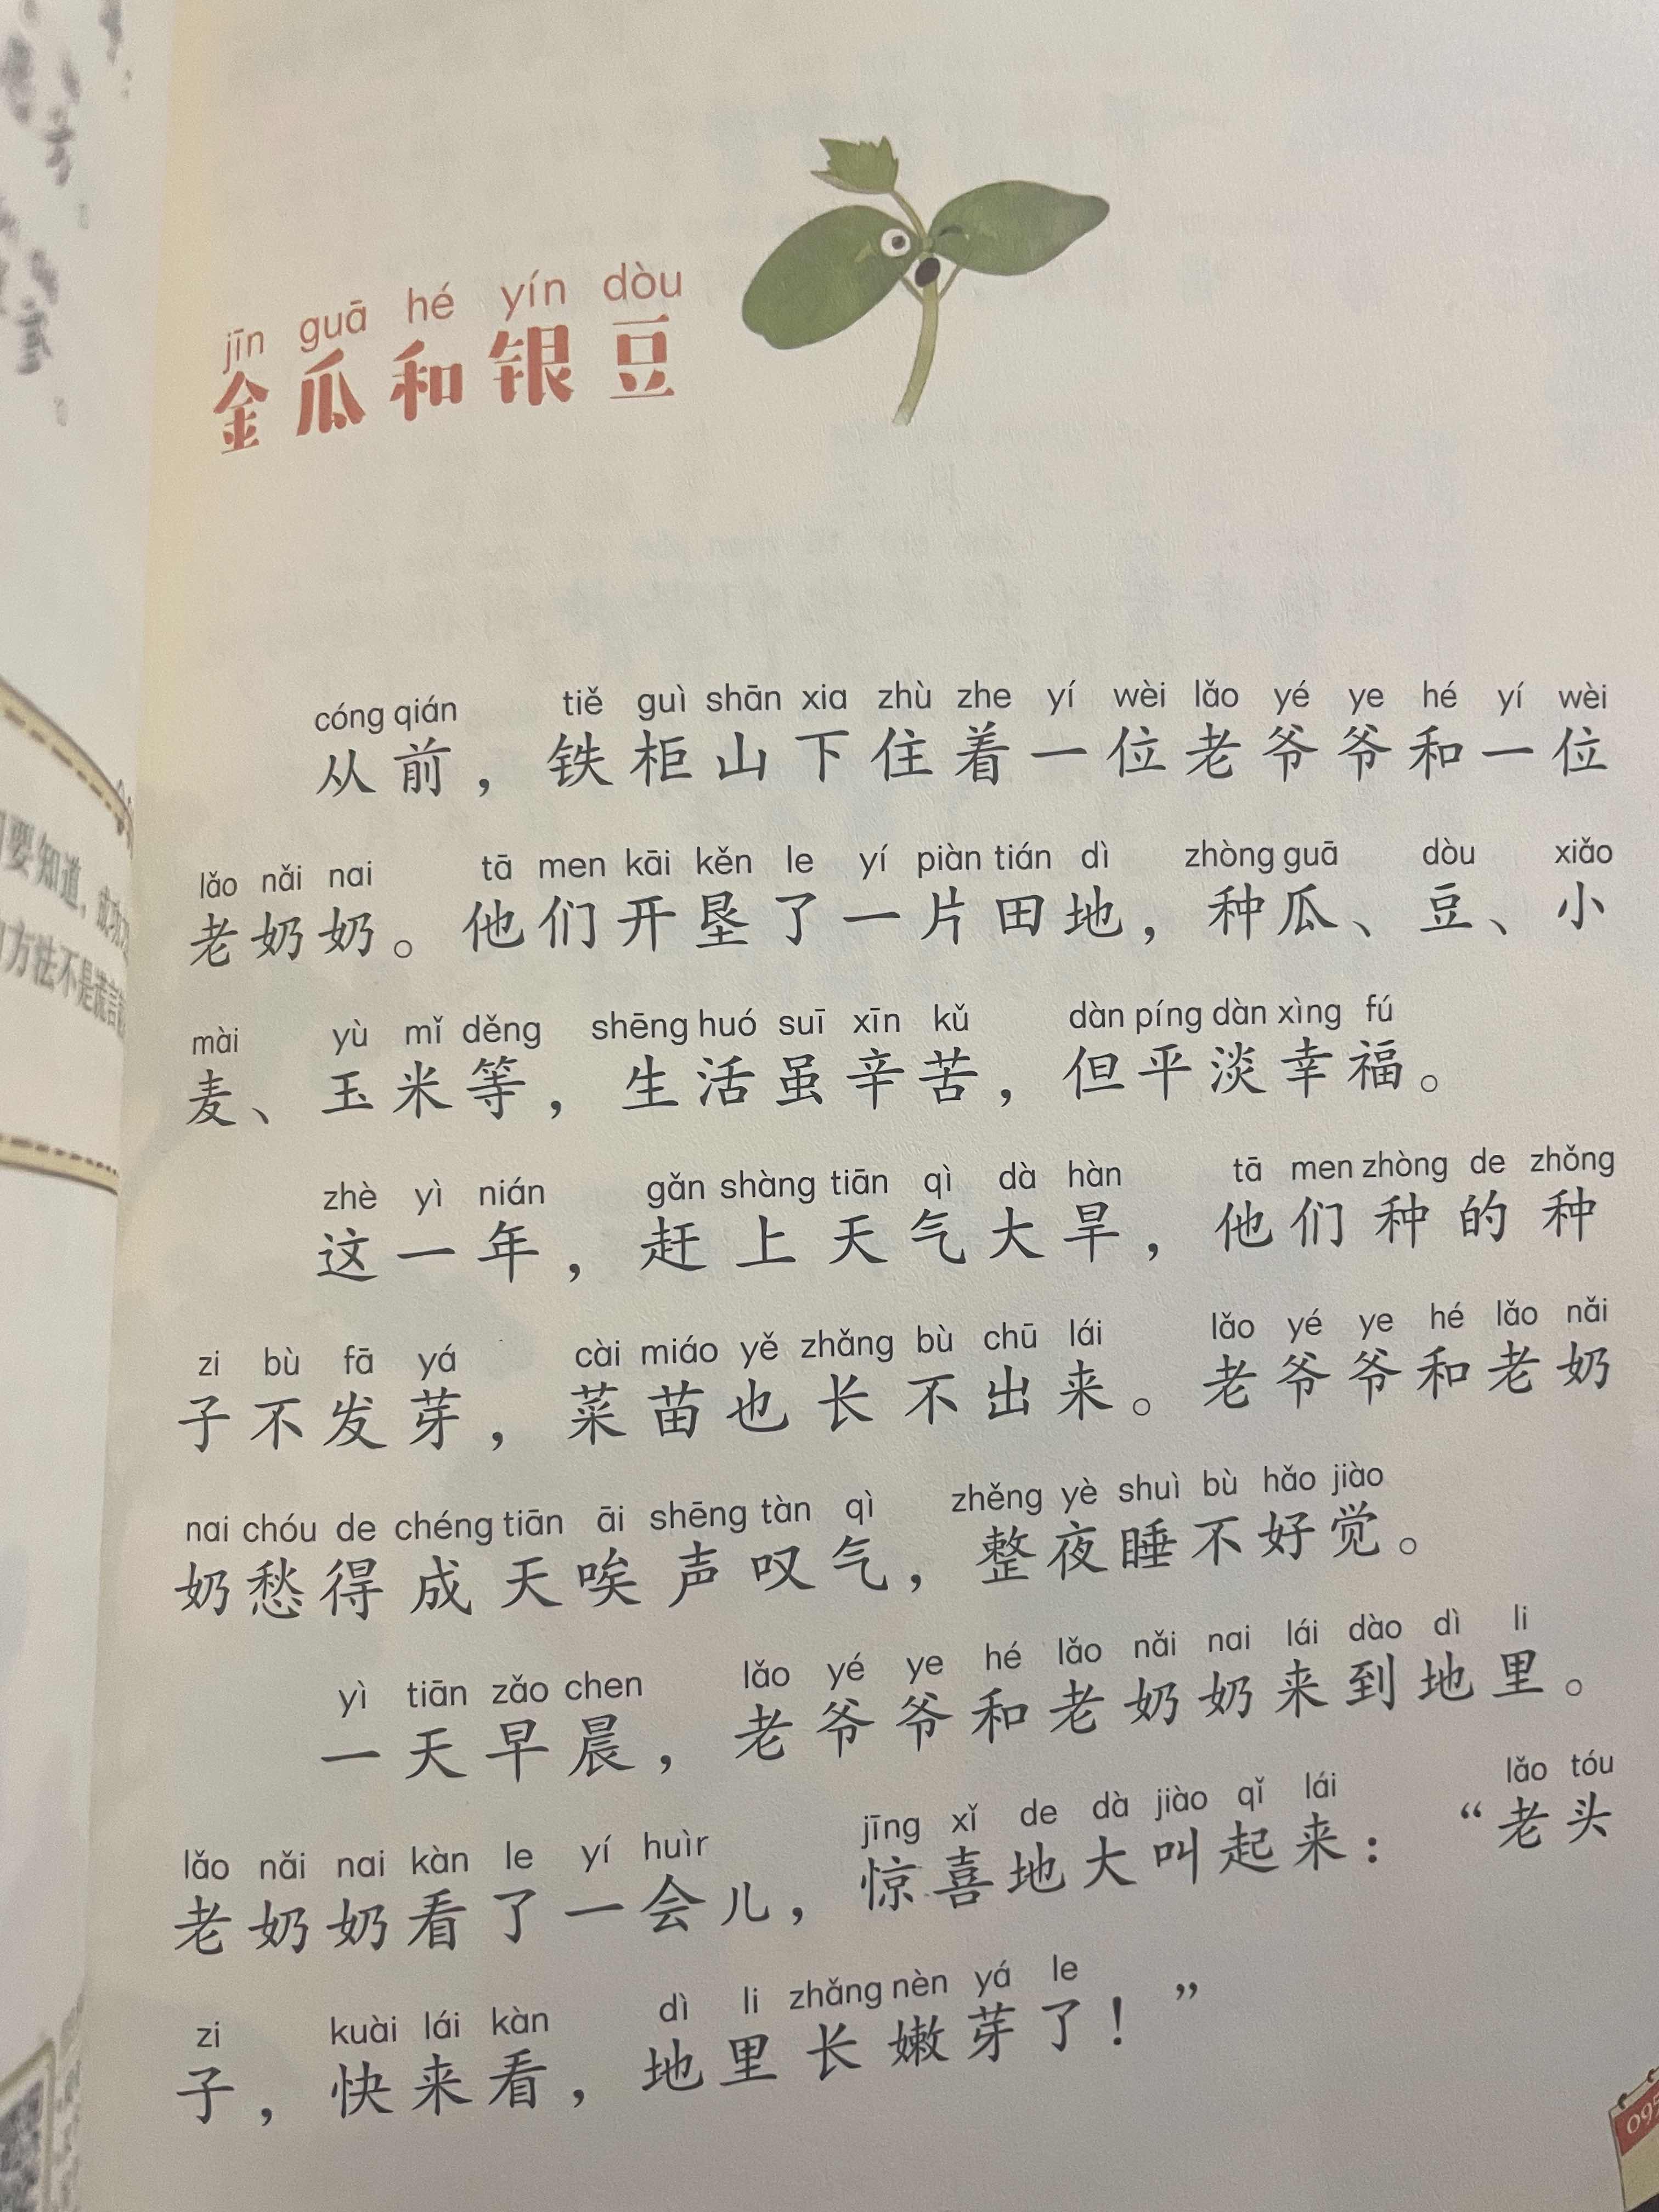 jīn guā hé yín dòu
金瓜和银豆
cóng qián tiě guì shān xia zhù zhe yí wèi lǎo yé ye hé yí wèi
从前，铁柜山下住着一位老爷爷和一位
lǎo nǎi nai tā men kāi kěn le yí piàn tián dì zhòng guā dòu xiǎo
老奶奶。他们开垦了一片田地，种瓜、豆、小
mài yù mǐ děng shēng huó suī xīn kǔ dàn píng dàn xìng fú
麦、玉米等，生活虽辛苦，但平淡幸福。
zhè yì nián gǎn shàng tiān qì dà hàn tā men zhòng de zhǒng
这一年，赶上天气大旱，他们种的种
zi bù fā yá cài miáo yě zhǎng bù chū lái lǎo yé ye hé lǎo nǎi
子不发芽，菜苗也长不出来。老爷爷和老奶
nai chóu de chéng tiān āi shēng tàn qì zhěng yè shuì bù hǎo jiào
奶愁得成天唉声叹气，整夜睡不好觉。
yì tiān zǎo chen lǎo yé ye hé lǎo nǎi nai lái dào dì li
一天早晨，老爷爷和老奶奶来到地里。
lǎo nǎi nai kàn le yí huìr jīng xǐ de dà jiào qǐ lái lǎo tóu
老奶奶看了一会儿，惊喜地大叫起来：“老头
zi kuài lái kàn dì li zhǎng nèn yá le
子，快来看，地里长嫩芽了！”
要知道，
方法不是谎言
095